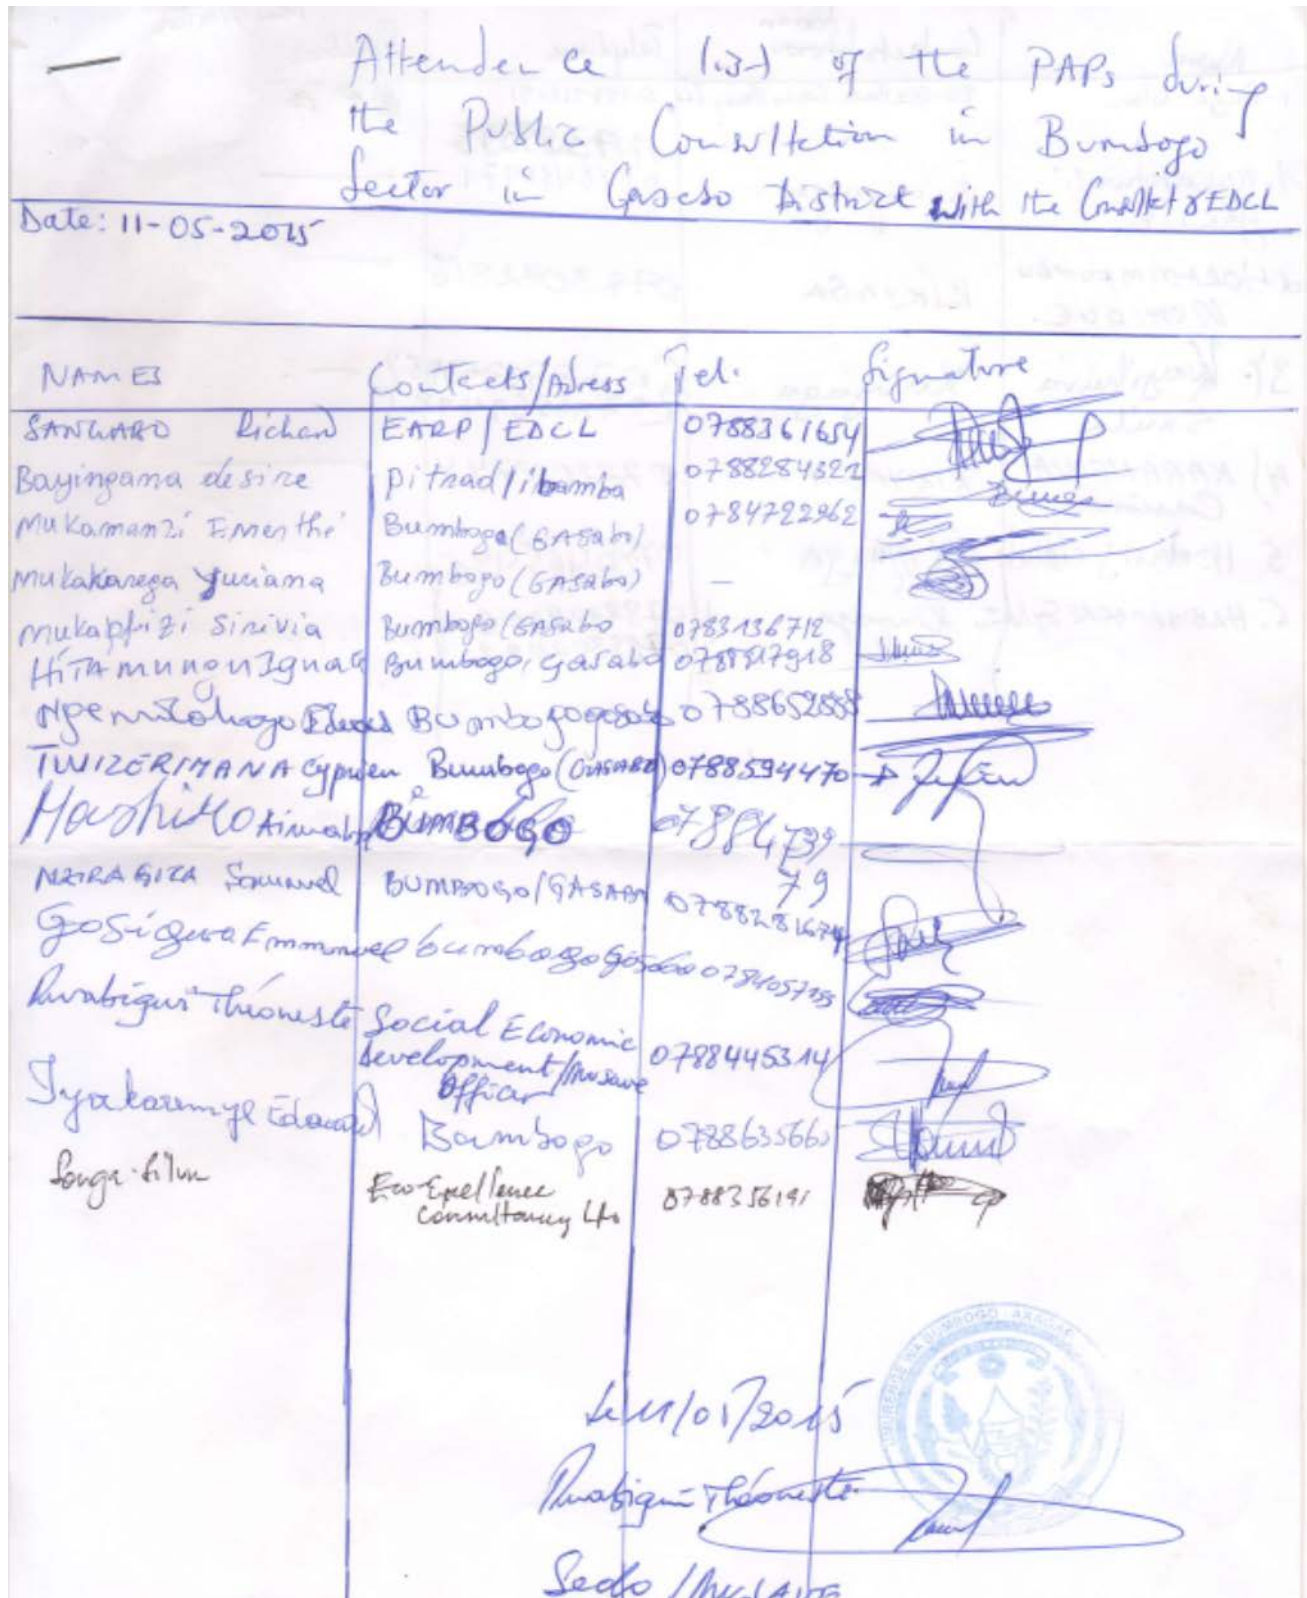 Attendence list of the PAPs during
the Public Consultation in Bumbogo
Sector in Gasabo District with the Consltct & EDCL
Date: 11-05-2015
NAMES Contects/Adress Tel. Signature
SANGABO Richard EARP/EDCL 0788361654
Bayingama desire pitrad/ibamba 0788284322
Mukamanzi Emerthe Bumbogo (GASabo) 0784722962
Mukakarega Yuriana Bumbogo (GASabo) -
Mukapfizi Sirivia Bumbogo (GASabo 0783136712
HiTAmungu Ignate Bumbogo, Gasabo
Bumbogo gasabo 0788652888
TWIZERIMANA Cyprien Bumbogo (GASABO) 0788594470
BUMBOGO 0788473979
NZIRAGIZA Samuel BUMBOGO/GASABO
Gosigwa Emmanuel bumbogo gasabo
Rwabigwi Théoneste Social Economic
Development/Musave
Officer 0788445314
Iyakaremye Edouard Bumbogo 078863566
Songa Silvin Eco-Excellence
Consultancy Ltd 0788356191
Le 11/05/2015
Rwabigwi Théoneste
Sedo / Musave